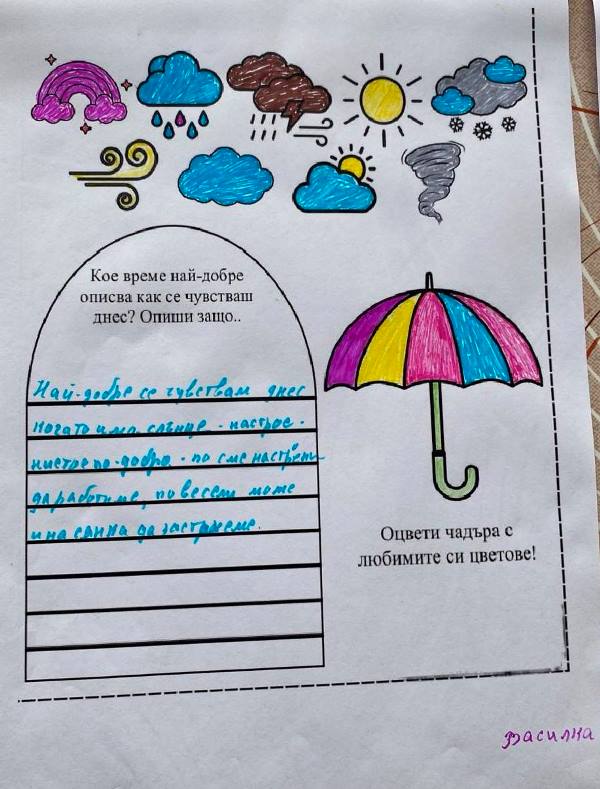 Кое време най-добре
описва как се чувстваш
днес? Опиши защо..
Най-добре се чувствам днес
когато има слънце - настрое-
нието по-добро - по сме настрени
да работиме, по весели може
и на сянка да застанеме.
Оцвети чадъра с
любимите си цветове!
Василка